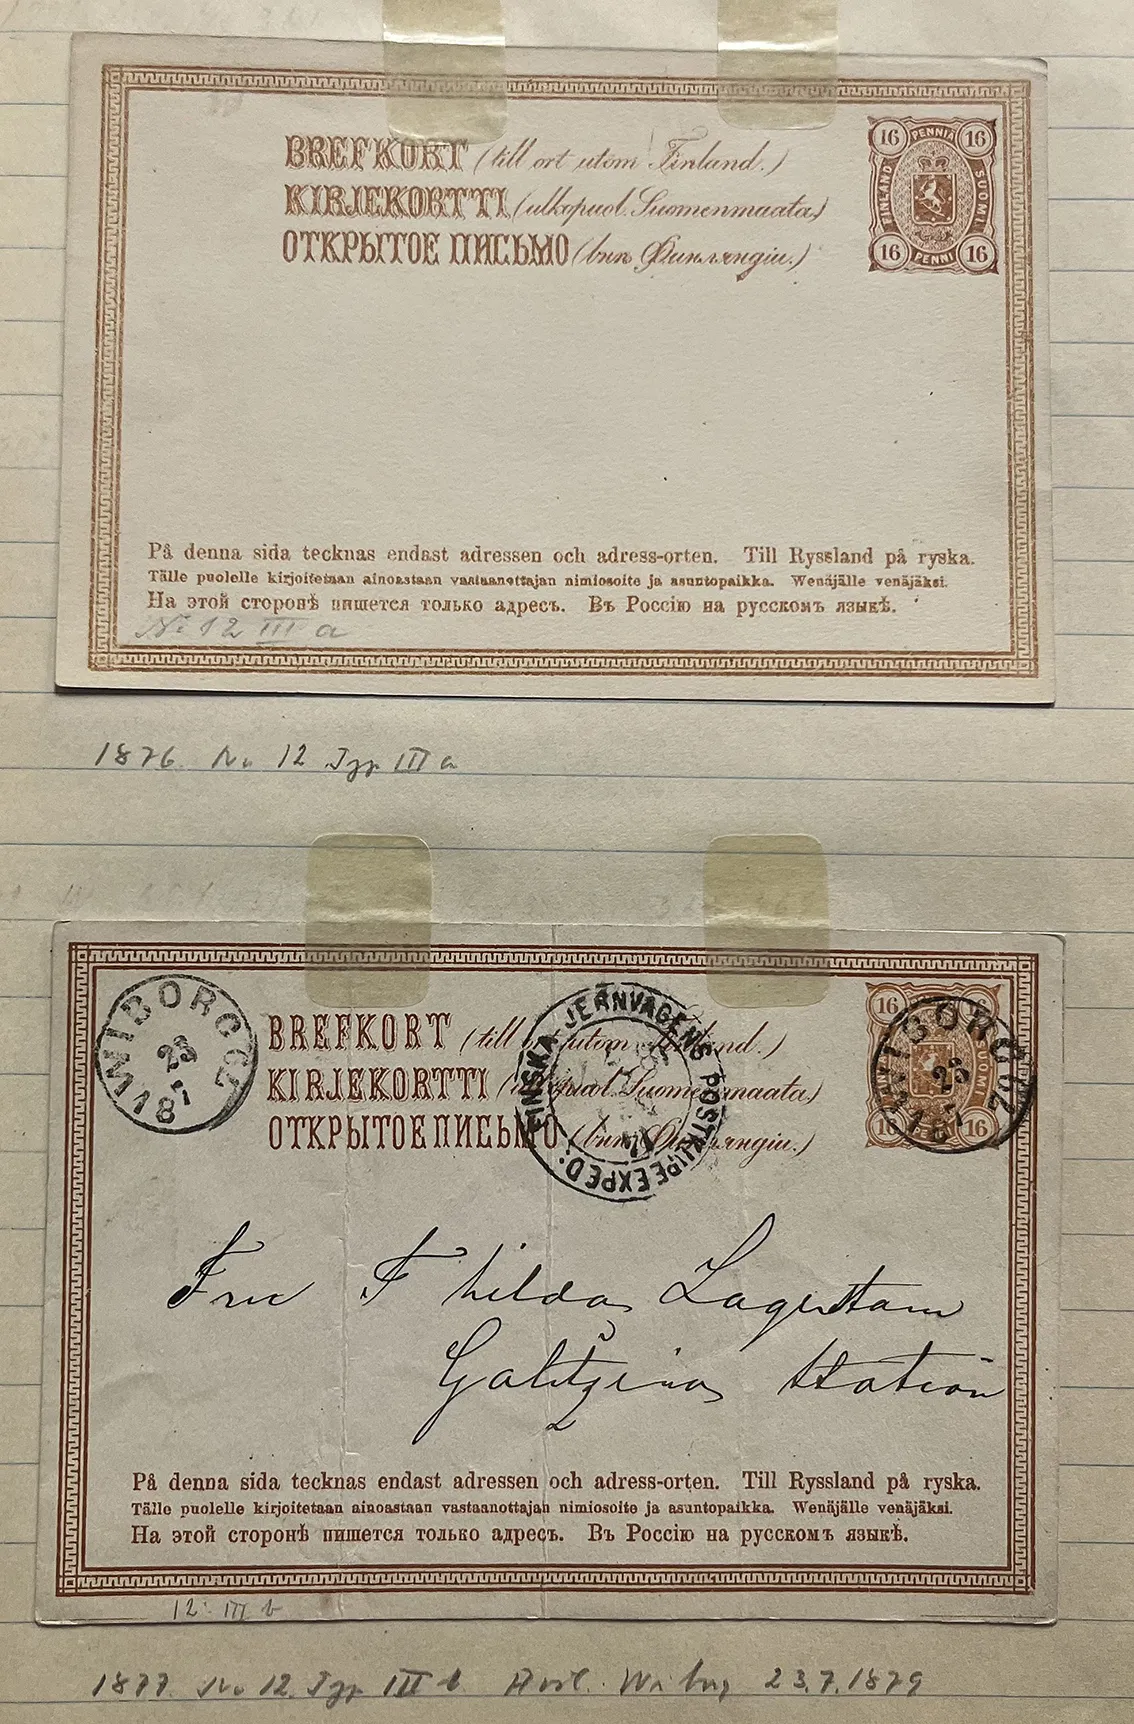 BREFKORT (till ort utom Finland.)
KIRJEKORTTI (ulkopuol. Suomenmaata)
ОТКРЫТОЕ ПИСЬМО (внѣ Финляндіи.)
16 PENNIÄ 16
FINLAND SUOMI
16 PENNI 16
På denna sida tecknas endast adressen och adress-orten. Till Ryssland på ryska.
Tälle puolelle kirjoitetaan ainoastaan vastaanottajan nimiosoite ja asuntopaikka. Wenäjälle venäjäksi.
На этой сторонѣ пишется только адресъ. Въ Россію на русскомъ языкѣ.
No 12 III a
1876. No 12 Typ III a
WIBORG
23
7
BREFKORT (till ort utom Finland.)
KIRJEKORTTI (ulkopuol. Suomenmaata)
ОТКРЫТОЕ ПИСЬМО (внѣ Финляндіи.)
FINSKA JERNVAGENS POSTKUPEEXPED:
16 16
SUOMI
WIBORG
23
7
Fru F hilda Lagerstam
Galitzina Station
På denna sida tecknas endast adressen och adress-orten. Till Ryssland på ryska.
Tälle puolelle kirjoitetaan ainoastaan vastaanottajan nimiosoite ja asuntopaikka. Wenäjälle venäjäksi.
На этой сторонѣ пишется только адресъ. Въ Россію на русскомъ языкѣ.
12 III b
1877. No 12. Typ III b Wiborg 23.7.1879